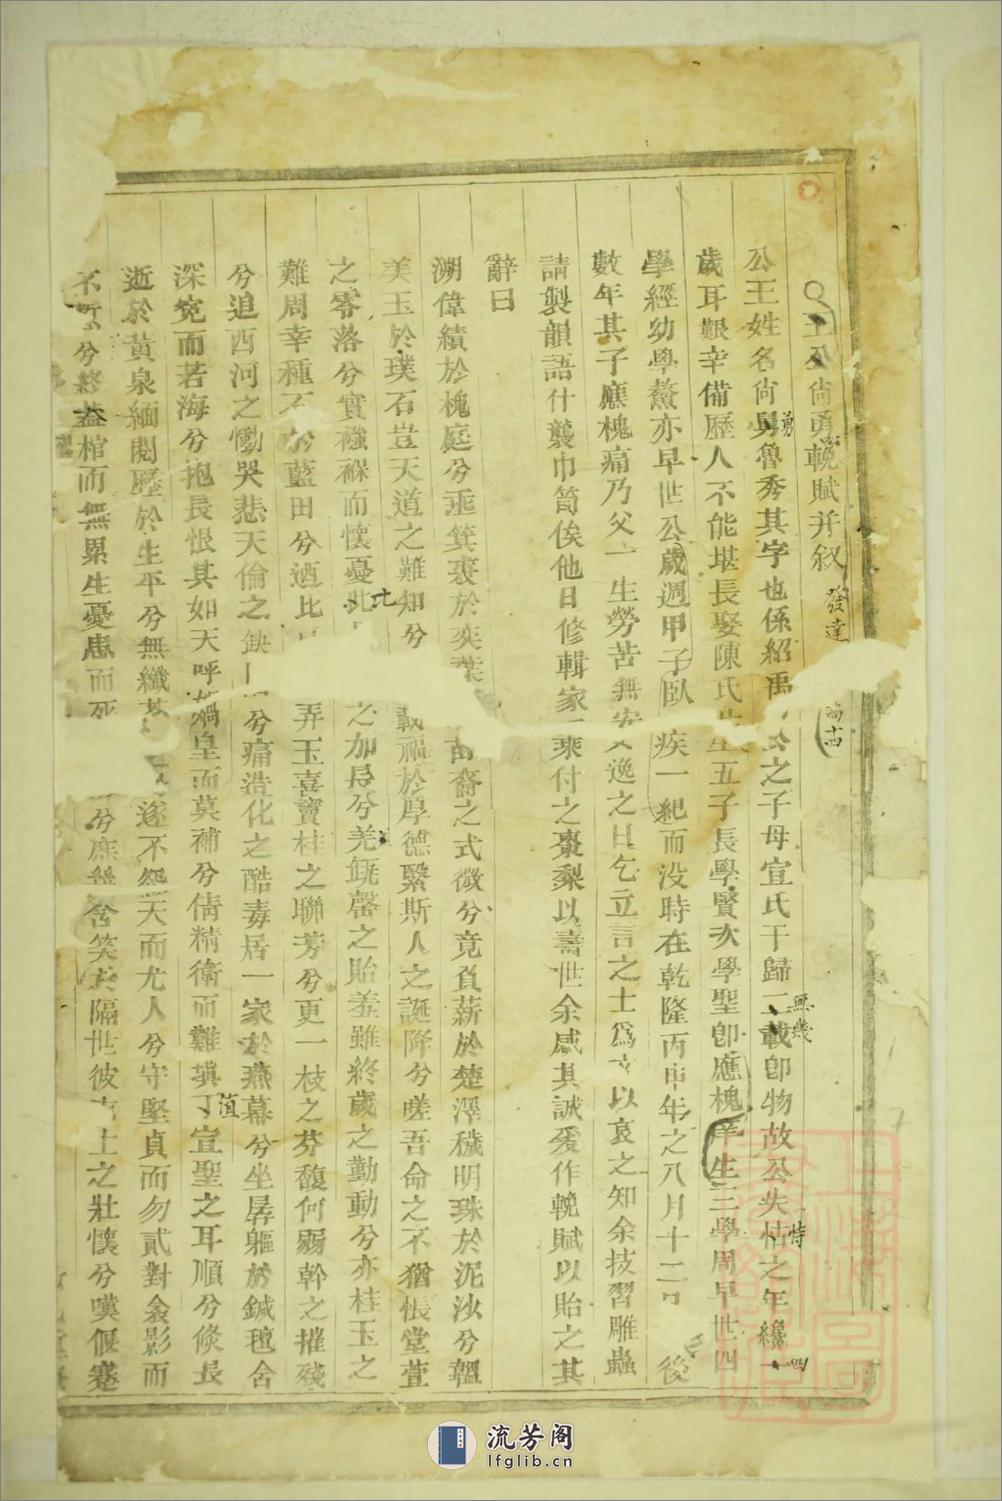 王公尚勇輓賦并叙
公王姓名尚勇魯秀其字也係紹禹公之子母宣氏于歸二載卽物故公失怙之年纔一
歲耳艱辛備歷人不能堪長娶陳氏生五子長學賢次學聖卽應槐羊生三學周早世四
學經幼學鰲亦早世公歲週甲子臥疾一紀而没時在乾隆丙申年之八月十二日後
數年其子應槐痛乃父一生勞苦無安逸之日乞立言之士爲文以哀之知余技習雕蟲
請製韻語什襲巾笥俟他日修輯家乘付之棗梨以壽世余感其誠爰作輓賦以貽之其
辭曰
溯偉績於槐庭兮垂箕裘於奕葉 苗裔之式微兮竟負薪於楚澤穢明珠於泥沙兮韞
美玉於璞石豈天道之難知兮 載福於厚德緊斯人之誕降兮嗟吾命之不猶悵堂萱
之零落兮實襁褓而懷憂 之加身兮羌缾罄之貽羞雖終歲之勤動兮亦桂玉之
難周幸種 於藍田兮迺比 弄玉喜竇桂之聯芳兮更一枝之芬馥何弱幹之摧殘
兮追西河之慟哭悲天倫之缺 兮痛造化之酷毒居一家於燕幕兮坐孱軀於鍼氊含
深寃而若海兮抱長恨其如天呼媧皇而莫補兮倩精衛而難塡丁宣聖之耳順兮倏長
逝於黄泉緬閱歷於生平兮無纖 遂不怨天而尤人兮守堅貞而勿貳對衾影而
不 兮終蓋棺而無累生憂患而死 兮庶幾含笑於隔世彼 士之壯懷兮嘆偃蹇
發達
勇
無幾
恃
填
流芳阁
lfglib.cn